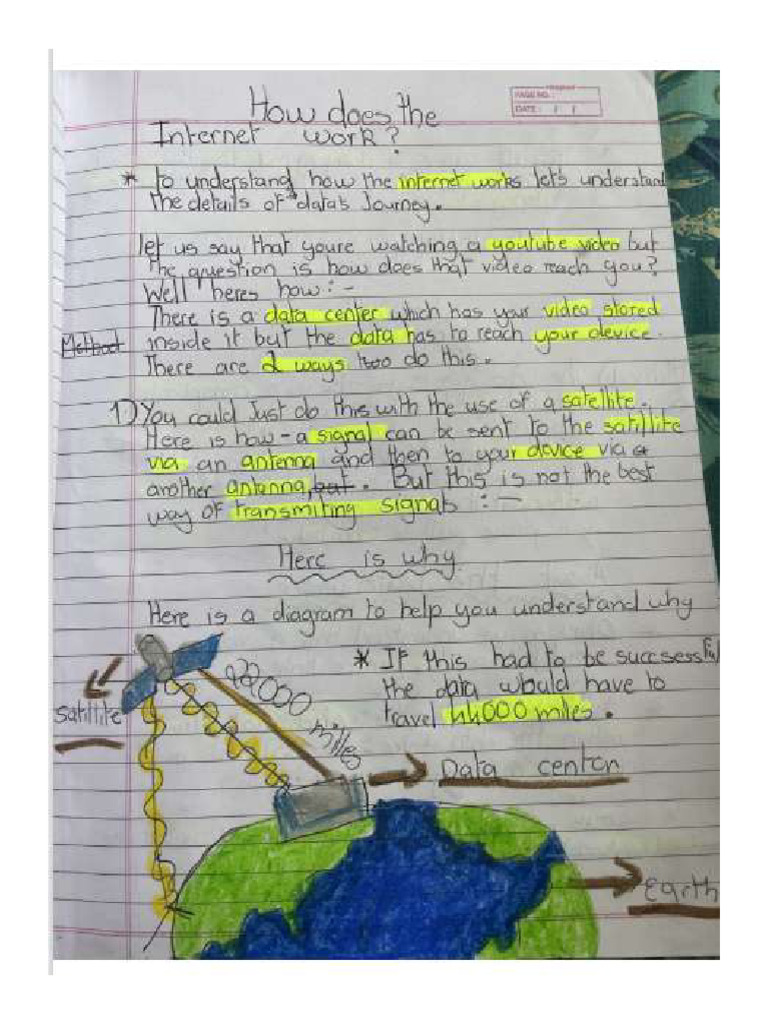 How does the
PAGE NO. :
DATE : / /
Internet work?
* To understand how the internet works let's understand
the details of data's Journey.
let us say that youre watching a youtube video but
the question is how does that video reach you?
Well heres how : -
There is a data center which has your video stored
Method inside it but the data has to reach your device.
There are 2 ways too do this.
1) You could Just do this with the use of a satellite.
Here is how - a signal can be sent to the satillite
via an antenna and then to your device via a
another antenna, but . But this is not the best
way of transmiting signals : -
Here is why
Here is a diagram to help you understand why
* If this had to be succsessful
the data would have to
travel 44000 miles.
22000 miles
Satillite
Data center
Earth